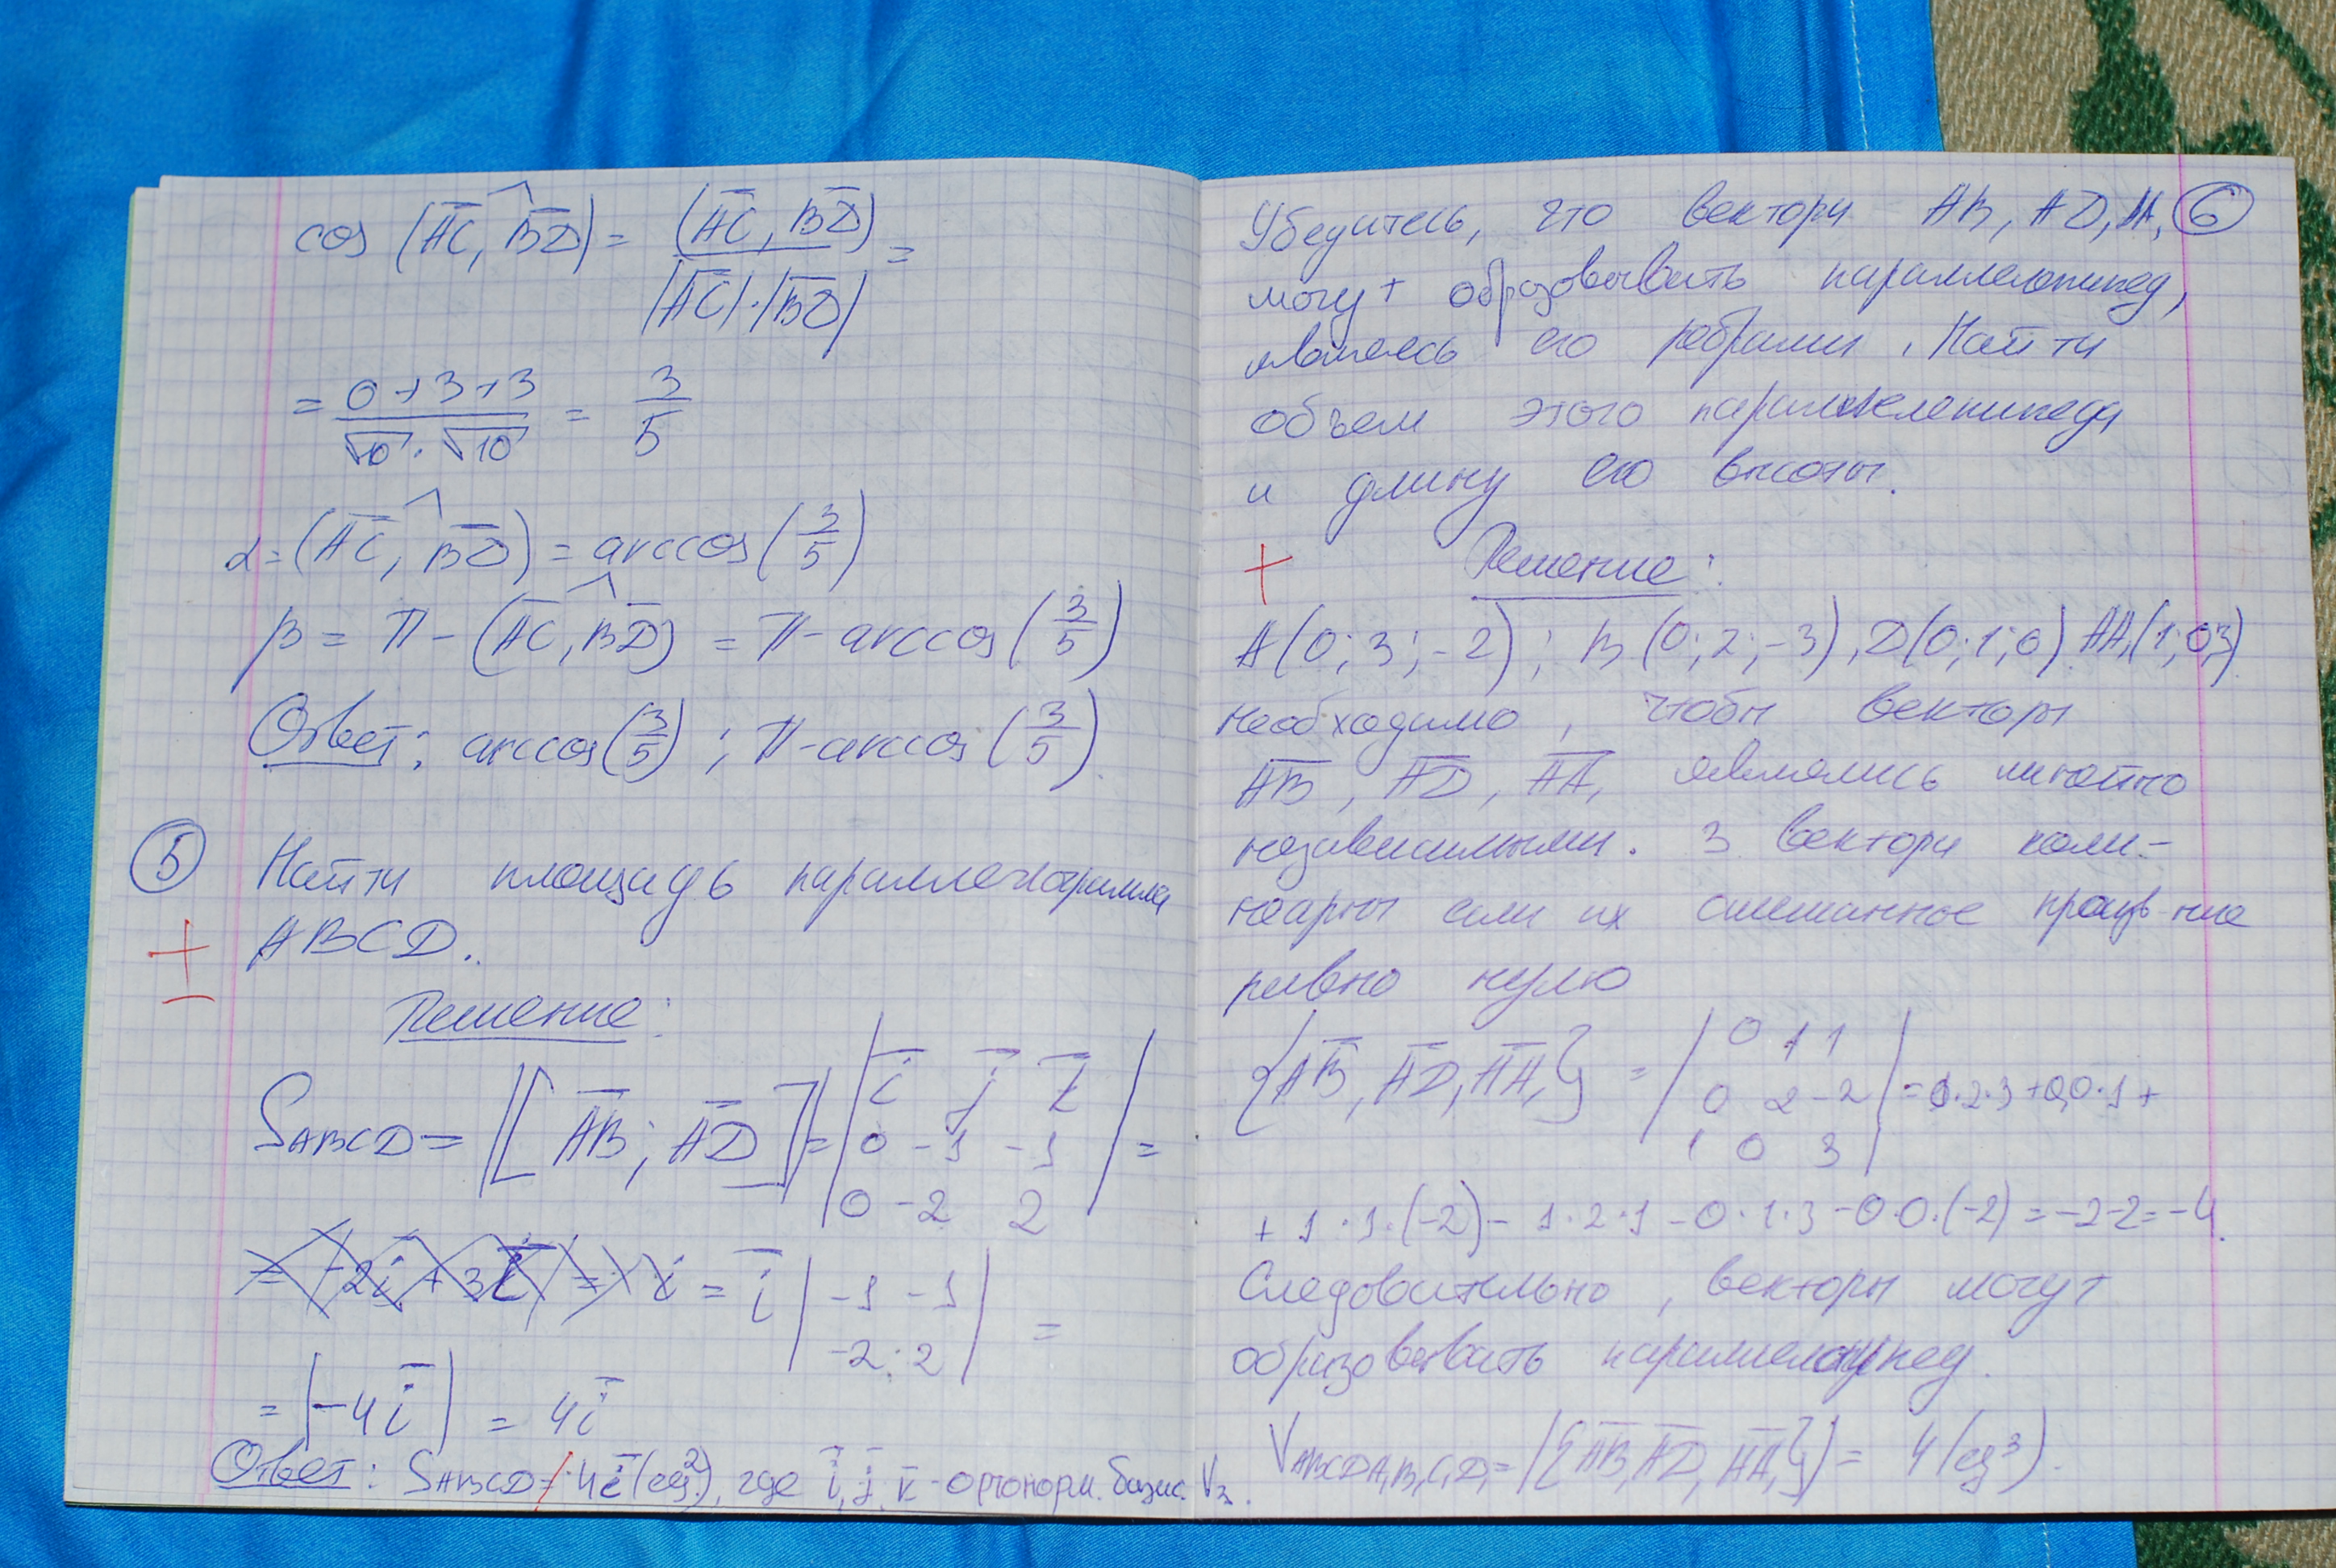 cos (AC, BD) = (AC, BD) / |AC|·|BD| =
= 0+3+3 / √10 · √10 = 3/5
α = (AC, BD) = arccos (3/5)
β = π - (AC, BD) = π - arccos (3/5)
Ответ: arccos (3/5) ; π - arccos (3/5).
5 Найти площадь параллелограмма
ABCD.
±
Решение:
S ABCD = |[AB; AD]| = | i j k
0 -1 -1
0 -2 2 | =
= i | -1 -1
-2 2 | =
= |-4i| = 4i
Ответ: S ABCD = 4i (ед.²), где i, j, k - ортонорм. базис V₃.
Убедитесь, что векторы AB, AD, AA₁ 6
могут образовывать параллелепипед,
являясь его ребрами. Найти
объем этого параллелепипеда
и длину его высоты.
+ Решение:
A(0; 3; -2); B(0; 2; -3), D(0; 1; 0) AA₁(1; 0; 3)
необходимо, чтобы векторы
AB, AD, AA₁ являлись линейно
независимыми. 3 вектора коли-
неарны если их смешанное произв-ние
равно нулю
{AB, AD, AA₁} = | 0 1 1
0 2 -2
1 0 3 | = 0·2·3 + 0·0·1 +
+ 1·1·(-2) - 1·2·1 - 0·1·3 - 0·0·(-2) = -2-2 = -4.
Следовательно, векторы могут
образовывать параллелепипед.
V ABCDA₁B₁C₁D₁ = |{AB, AD, AA₁}| = 4 (ед³).